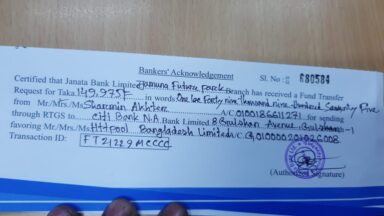 Bankers' Acknowledgement Sl. No : 680584
Certified that Janata Bank Limited Jamuna Future Park Branch has received a Fund Transfer
Request for Taka 149,975/- in words One lac Forty nine thousand nine hundred Seventy Five
from Mr./Mrs./Ms. Sharmin Akhter A/C. 0100186611271 for sending
through RTGS to Citi Bank N.A Bank Limited 8 Gulshan Avenue Gulshan-1
favoring Mr./Mrs./Ms. Httpool Bangladesh Limited A/C.
Transaction ID: FT21229MCCCQ
(Authorized Signature)